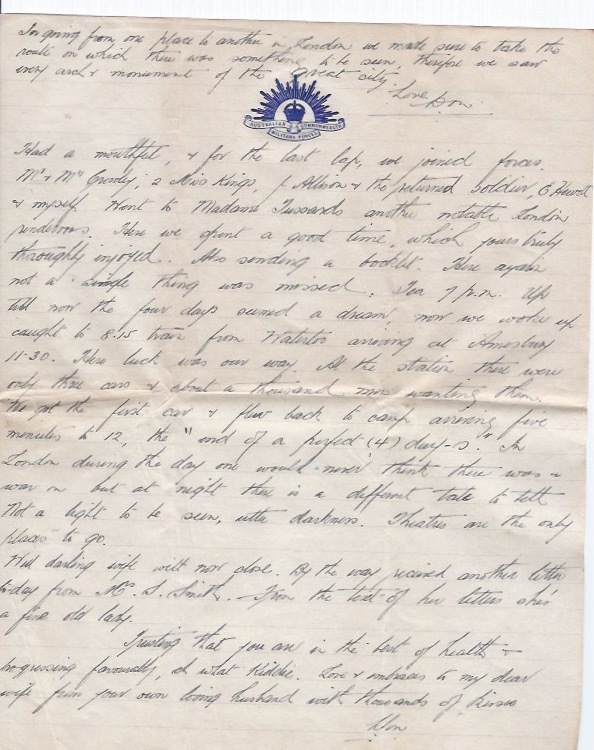 In going from one place to another in London we made sure to take the
route on which there was something to be seen, therefore we saw
every arch & monument of the Great city.
Love Don.
AUSTRALIAN COMMONWEALTH
MILITARY FORCES
Had a mouthful, & for the last lap, we joined forces.
Mr & Mrs 2 Miss Kings, Allison & the returned soldier, E Hewitt
& myself. Went to Madame Tussards another notable London
rendevous. Here we spent a good time, which yours truly
thoroughly enjoyed. Also sending a booklet. Here again
not a single thing was missed. Tea 7 p.m. Up
till now the four days seemed a dream, now we woke up
caught to 8.15 train from Waterloo arriving at Amesbury
11-30. Here luck was our way. At the station there were
only three cars & about a thousand men wanting them.
We got the first car & flew back to camp arriving five
minutes to 12, the "end of a perfect (4) day-s." In
London during the day one would never think there was a
war on but at night there is a different tale to tell
Not a light to be seen, utter darkness. Theatres are the only
places to go.
Well darling wife will now close. By the way recieved another letter
to-day from Mrs. S. Smith. From the text of her letters she's
a fine old lady.
Trusting that you are in the best of health &
progressing favourably, eh what Kiddie. Love & embraces to my dear
wife from your own loving husband with thousands of kisses
Don